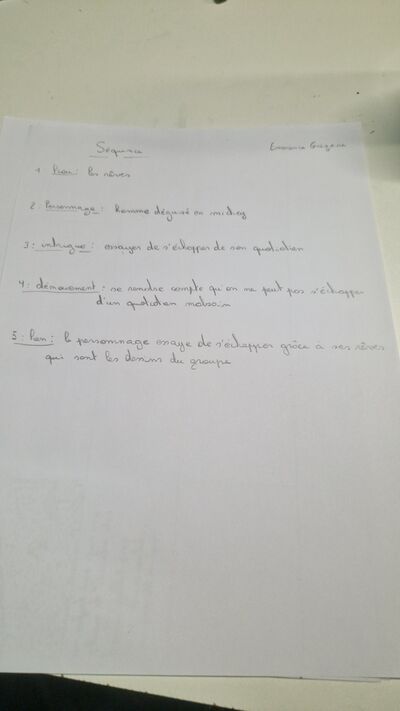 Séquence
1 lieu : les rêves
2 : Personnage : Homme déguisé en mickey
3 : intrigue : essayer de s'échapper de son quotidien
4 : dénouement : se rendre compte qu'on ne peut pas s'échapper
d'un quotidien malsain
5 : lien : le personnage essaye de s'échapper grâce à ses rêves
qui sont les dessins du groupe